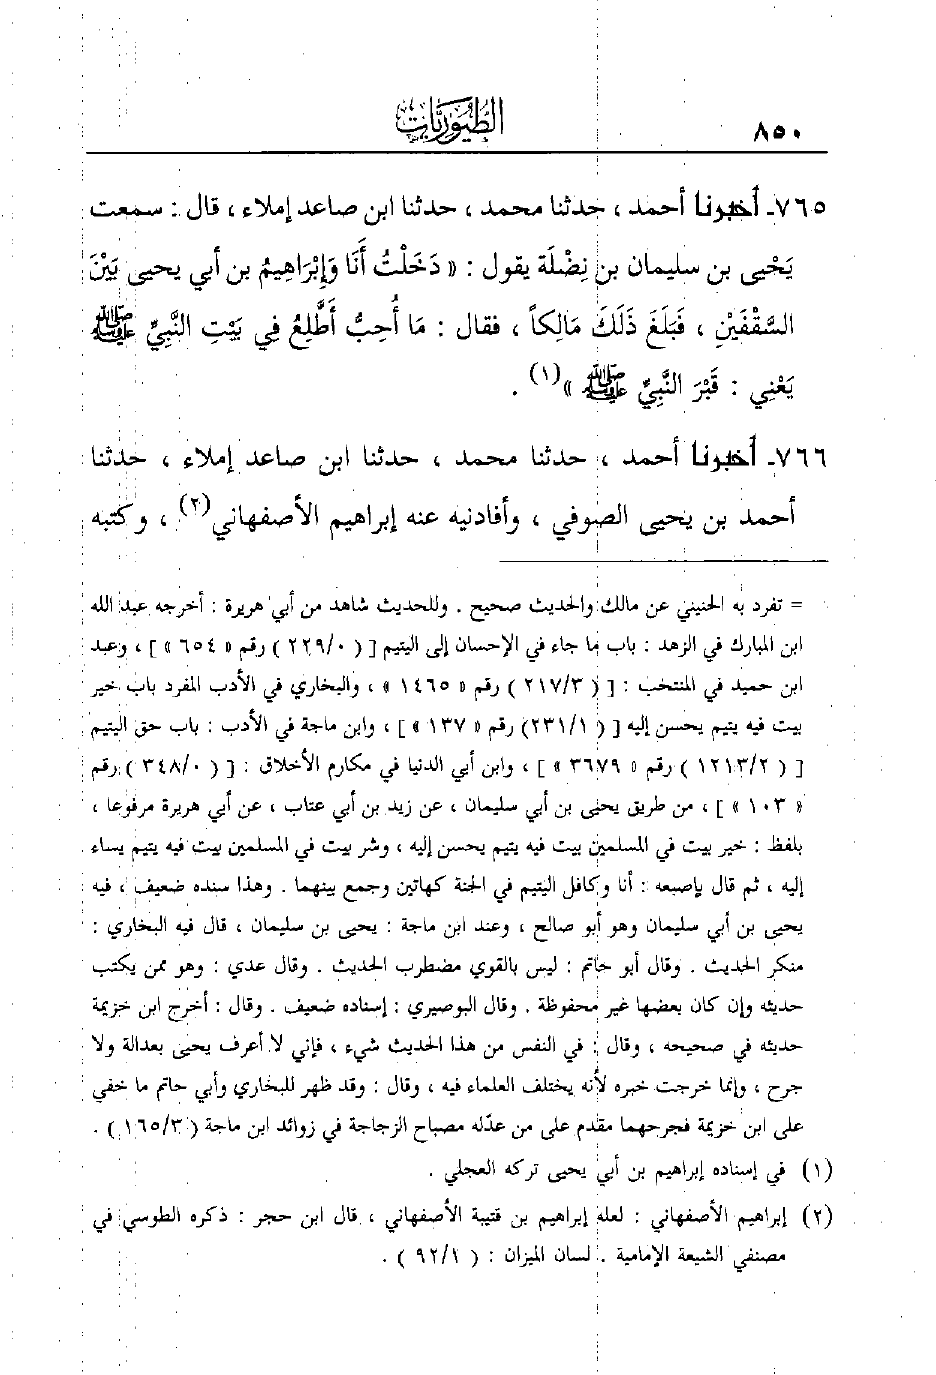 ٨٥٠
الطيوريات
٧٦٥- أخبرنا أحمد ، حدثنا محمد ، حدثنا ابن صاعد إملاء ، قال : سمعت
يَحْيى بن سليمان بن نِضْلَة يقول : « دَخَلْتُ أَنَا وَإِبْرَاهِيمُ بن أبي يحيى بَيْنَ
السَّقْفَيْنِ ، فَبَلَغَ ذَلَكَ مَالِكاً ، فقال : مَا أُحِبُّ أَطَّلِعُ فِي بَيْتِ النَّبِيِّ ﷺ
يَعْنِي : قَبْرَ النَّبِيِّ ﷺ »(١) .
٧٦٦- أخبرنا أحمد ، حدثنا محمد ، حدثنا ابن صاعد إملاء ، حدثنا
أحمد بن يحيى الصوفي ، وأفادنيه عنه إبراهيم الأصفهاني(٢) ، وكتبه
= تفرد به الحنيني عن مالك والحديث صحيح . وللحديث شاهد من أبي هريرة : أخرجه عبد الله
ابن المبارك في الزهد : باب ما جاء في الإحسان إلى اليتيم [ ( ٢٢٩/٠ ) رقم « ٦٥٤ » ] ، وعبد
ابن حميد في المنتخب : [ ( ٢١٧/٣ ) رقم « ١٤٦٥ » ، والبخاري في الأدب المفرد باب خير
بيت فيه يتيم يحسن إليه [ ( ٢٣١/١) رقم « ١٣٧ » ] ، وابن ماجة في الأدب : باب حق اليتيم
[ ( ١٢١٣/٢ ) رقم « ٣٦٧٩ » ] ، وابن أبي الدنيا في مكارم الأخلاق : [ ( ٣٤٨/٠ ) رقم
« ١٠٣ » ] ، من طريق يحيى بن أبي سليمان ، عن زيد بن أبي عتاب ، عن أبي هريرة مرفوعا ،
بلفظ : خير بيت في المسلمين بيت فيه يتيم يحسن إليه ، وشر بيت في المسلمين بيت فيه يتيم يساء
إليه ، ثم قال بإصبعه : أنا وكافل اليتيم في الجنة كهاتين وجمع بينهما . وهذا سنده ضعيف ، فيه
يحيى بن أبي سليمان وهو أبو صالح ، وعند ابن ماجة : يحيى بن سليمان ، قال فيه البخاري :
منكر الحديث . وقال أبو حاتم : ليس بالقوي مضطرب الحديث . وقال عدي : وهو ممن يكتب
حديثه وإن كان بعضها غير محفوظة . وقال البوصيري : إسناده ضعيف . وقال : أخرج ابن خزيمة
حديثه في صحيحه ، وقال : في النفس من هذا الحديث شيء ، فإني لا أعرف يحيى بعدالة ولا
جرح ، وإنما خرجت خبره لأنه يختلف العلماء فيه ، وقال : وقد ظهر للبخاري وأبي حاتم ما خفي
على ابن خزيمة فجرحهما مقدم على من عدّله مصباح الزجاجة في زوائد ابن ماجة ( ١٦٥/٣ ) .
(١) في إسناده إبراهيم بن أبي يحيى تركه العجلي .
(٢) إبراهيم الأصفهاني : لعله إبراهيم بن قتيبة الأصفهاني ، قال ابن حجر : ذكره الطوسي في
مصنفي الشيعة الإمامية . لسان الميزان : ( ٩٢/١ ) .